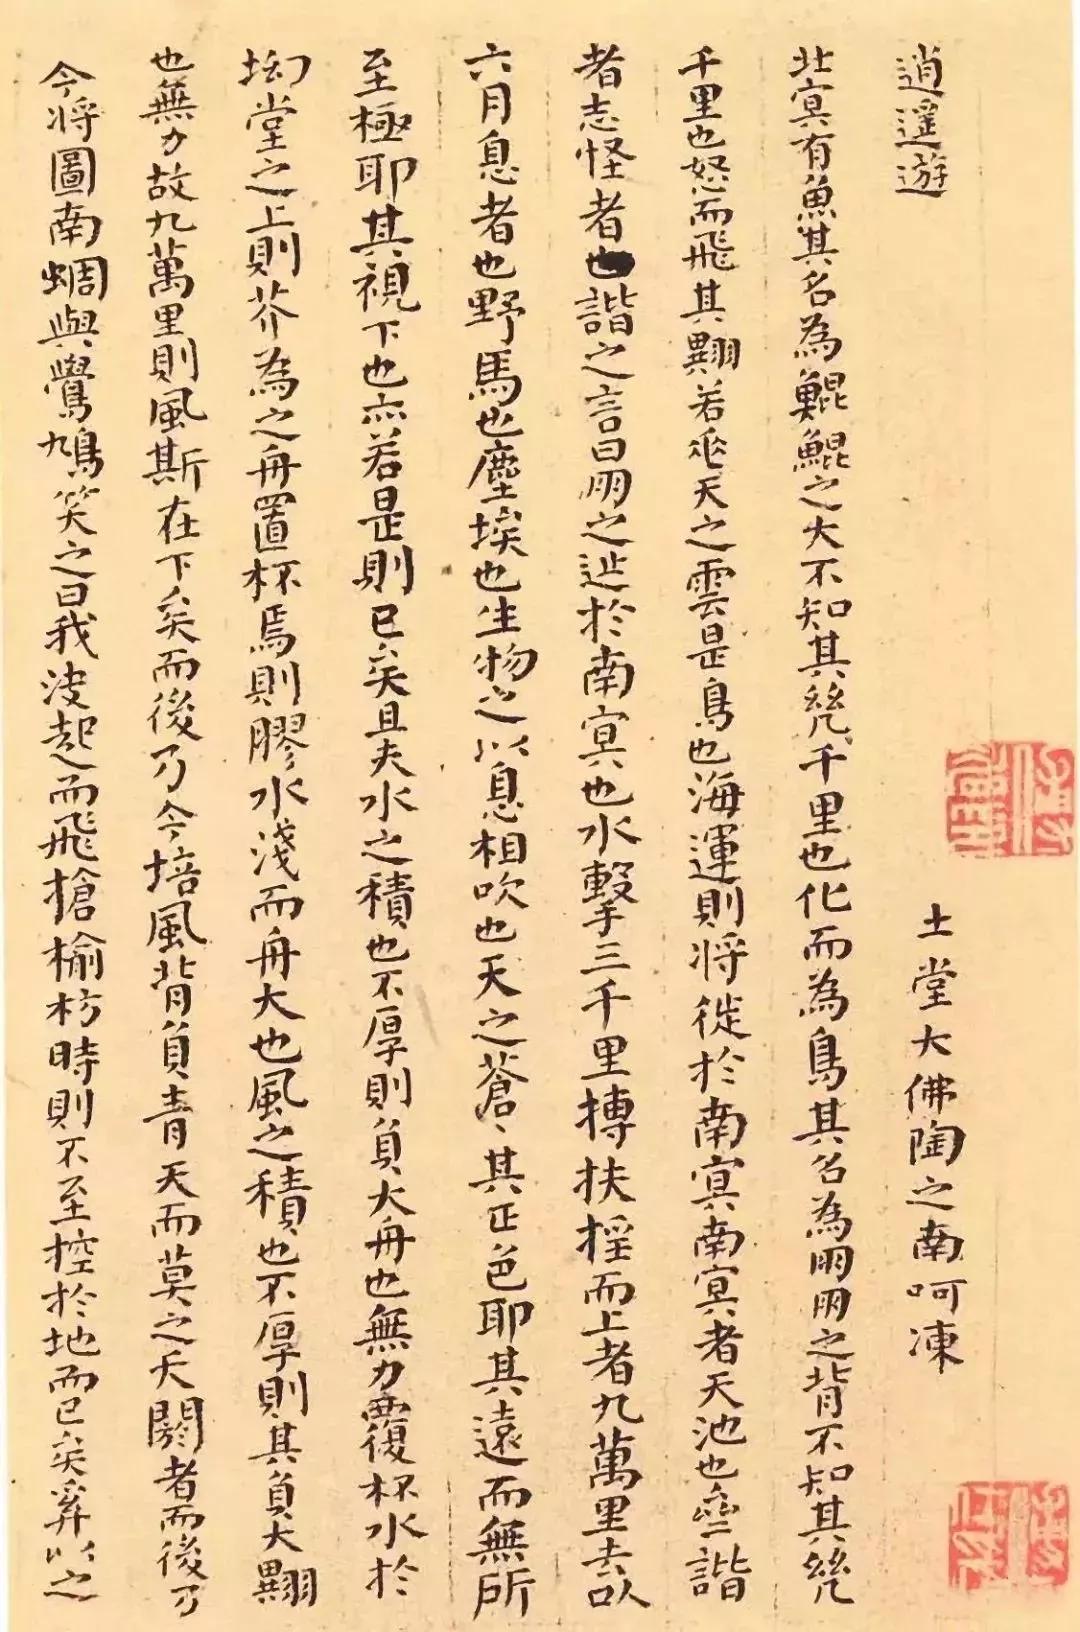 逍遙遊 土堂大佛陶之南呵凍
北㝠有魚其名為鯤鯤之大不知其幾千里也化而為鳥其名為朋朋之背不知其幾
千里也怒而飛其翼若垂天之雲是鳥也海運則將徙於南㝠南㝠者天池也齊諧
者志怪者也諧之言曰朋之徙於南㝠也水擊三千里摶扶搖而上者九萬里去以
六月息者也野馬也塵埃也生物之以息相吹也天之蒼〻其正色耶其遠而無所
至極耶其視下也亦若是則已矣且夫水之積也不厚則負大舟也無力覆杯水於
坳堂之上則芥為之舟置杯焉則膠水淺而舟大也風之積也不厚則其負大翼
也無力故九萬里則風斯在下矣而後乃今培風背負青天而莫之夭閼者而後乃
今將圖南蜩與鷽鳩笑之曰我決起而飛槍榆枋時則不至控於地而已矣奚以之